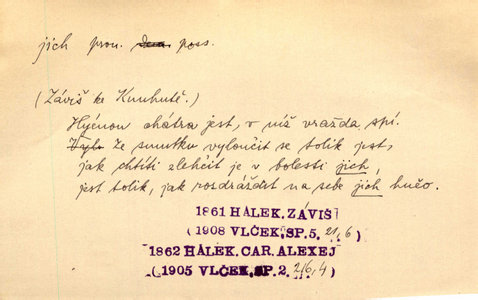 jich pron. poss.
(Záviš ke Kunhutě.)
Hyénou chátra jest, v níž vražda spí.
Že smutku vyloučit se tolik jest,
jak chtíti zlehčit je v bolesti jich,
jest tolik, jak rozdráždit na sebe jich hučo.
1861 HÁLEK. ZÁVIŠ
(1908 VLČEK, SP. 5. 21, 6)
1862 HÁLEK. CAR. ALEXEJ
(1905 VLČEK, SP. 2. 216, 4)